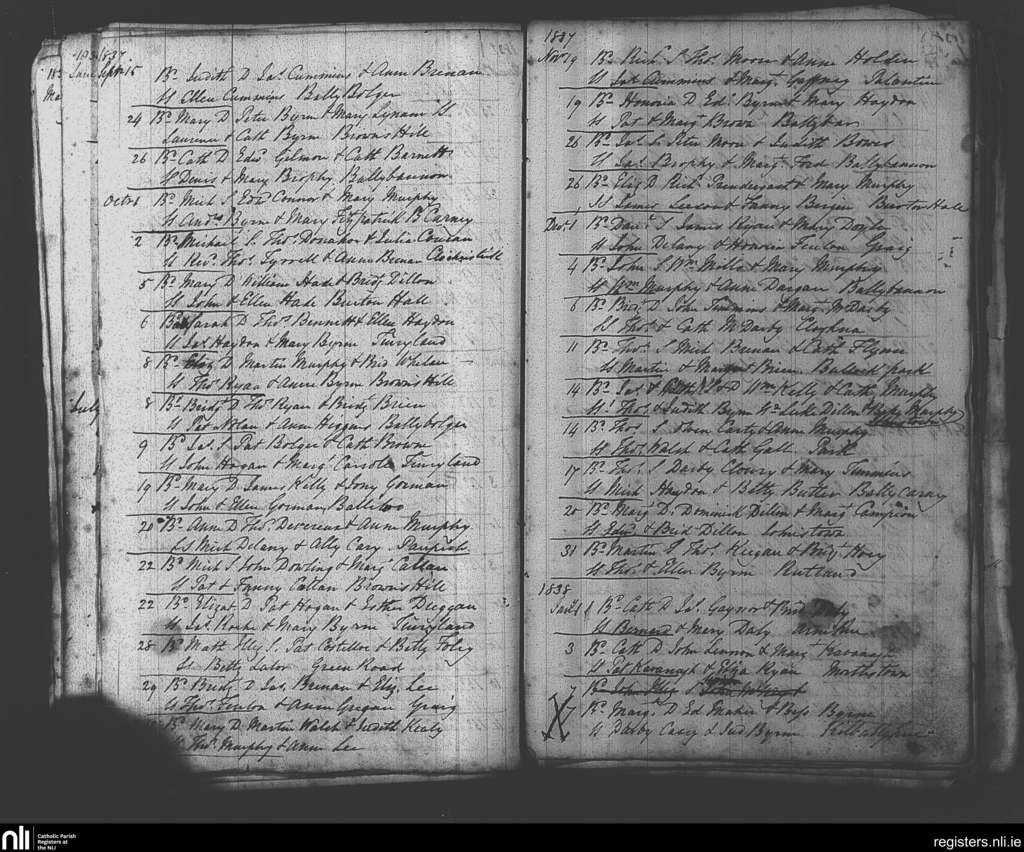 1837
Sept 15 Bd. Judith D Jas. Cummins & Anne Brenan
SS Ellen Cummins Ballybolger
24 Bd. Mary D Peter Byrne & Mary Lynam SS
Laurence & Cath Byrne Browns Hill
26 Bd. Cath D Edwd. Gilmon & Cath Barnett
SS Denis & Mary Brophy Ballybannon
Octr 1 Bd. Mich S Edwd Connor & Mary Murphy
SS Andw. Byrne & Mary Fitzpatrick B. Carney
2 Bd. Michael S. Thos. Donahoe & Julia
SS Revd. Thos. Tyrrell & Anne Brenan
5 Bd. Mary D William Hade & Bridt. Dillon
SS John & Ellen Hade Burton Hall
6 Bd. Sarah D Thos. Bennett & Ellen Haydon
SS Jas. Haydon & Mary Byrne Tinryland
8 Bd. Eliz D Martin Murphy & Brid Whelan
SS Thos. Ryan & Anne Byrne Browns Hill
July
8 Bd. Bridt. D Thos. Ryan & Bridt. Brien
SS Pat Nolan & Ann Higgins Ballybolger
9 Bd. Jas. S Pat Bolger & Cath Browne
SS John Hogan & Margt. Carroll Tinryland
19 Bd. Mary D James Kelly & Gorman
SS John & Ellen Gorman
20 Bd. Ann D Thos. Devereux & Ann Murphy
SS Mich Delany & Ally Cary Paupish
22 Bd. Mich S John Dowling & Margt. Callan
SS Pat & Fanny Callan Browns Hill
22 Bd. Elizat. D Pat Hogan & Esther Duggan
SS Jas. Roche & Mary Byrne Tinryland
28 Bd. Matt S. Pat Costelloe & Betty Foley
SS Betty Lalor Green Road
29 Bd. Bridt. D Jas. Brenan & Eliz. Lee
SS Thos. Fenlon & Anne Gregan Graig
Bd. Mary D Martin Walsh & Judith Kealy
SS Thos. Murphy & Ann Lee
1837
Novr 19 Bd. Rich. S Thos. Moore & Anne Holden
SS Jas Cummins & Margt. Gaffney Palantine
19 Bd. Honoria D Edwd. Byrne & Mary Haydon
SS Pat & Margt. Brown Ballybar
26 Bd. Jas. S. Peter Moore & Judith Bower
SS Jas. Brophy & Margt. Ford Ballybannon
26 Bd. Eliz D Rich. Prendergast & Mary Murphy
SS James & Fanny Bergin Burton Hall
Decr. 1 Bd. Danl. S James Ryan & Mary Dowly
SS John Delany & Honoria Fenlon Graig
4 Bd. John S Wm. Mills & Mary Murphy
SS Wm. Murphy & Anne Dargan Ballybannon
6 Bd. Bridt. D John Timmins & Margt. McDarby
SS Thos. & Cath McDarby Cloghna
11 Bd. Thos. S Mich Brenan & Cath Flynn
SS Martin & Margt. Brien park
14 Bd. Jas & D Wm. Kelly & Cath Murphy
SS Thos. & Judith Byrne Wm. Luke Dillon & Murphy
Johnstown
14 Bd. Thos S. Owen Carty & Anne Murphy
SS Thos. Walsh & Cath Gall Park
17 Bd. Thos. S Darby Cloury & Mary Timmins
SS Mich Haydon & Betty Butler Ballycarny
20 Bd. Margt. D. Dominick Dillon & Margt. Campion
SS & Brid Dillon Johnstown
31 Bd. Martin S Thos. Keegan & Bridt. Hoey
SS Thos. & Ellen Byrne Rutland
1838
Jany. 1 Bd. Cath D Jas. Gaynor & Brid Daly
SS Bernard & Mary Daly
3 Bd. Cath D John Lennon & Margt. Kavanagh
SS Pat Kavanagh & Eliza Ryan Morthystown
7 Bd. John
X 7 Bd. Margt. D Ed Maher & Bess Byrne
SS Darby Casey & Jud Byrne
nli Catholic Parish
Registers at
the NLI
registers.nli.ie